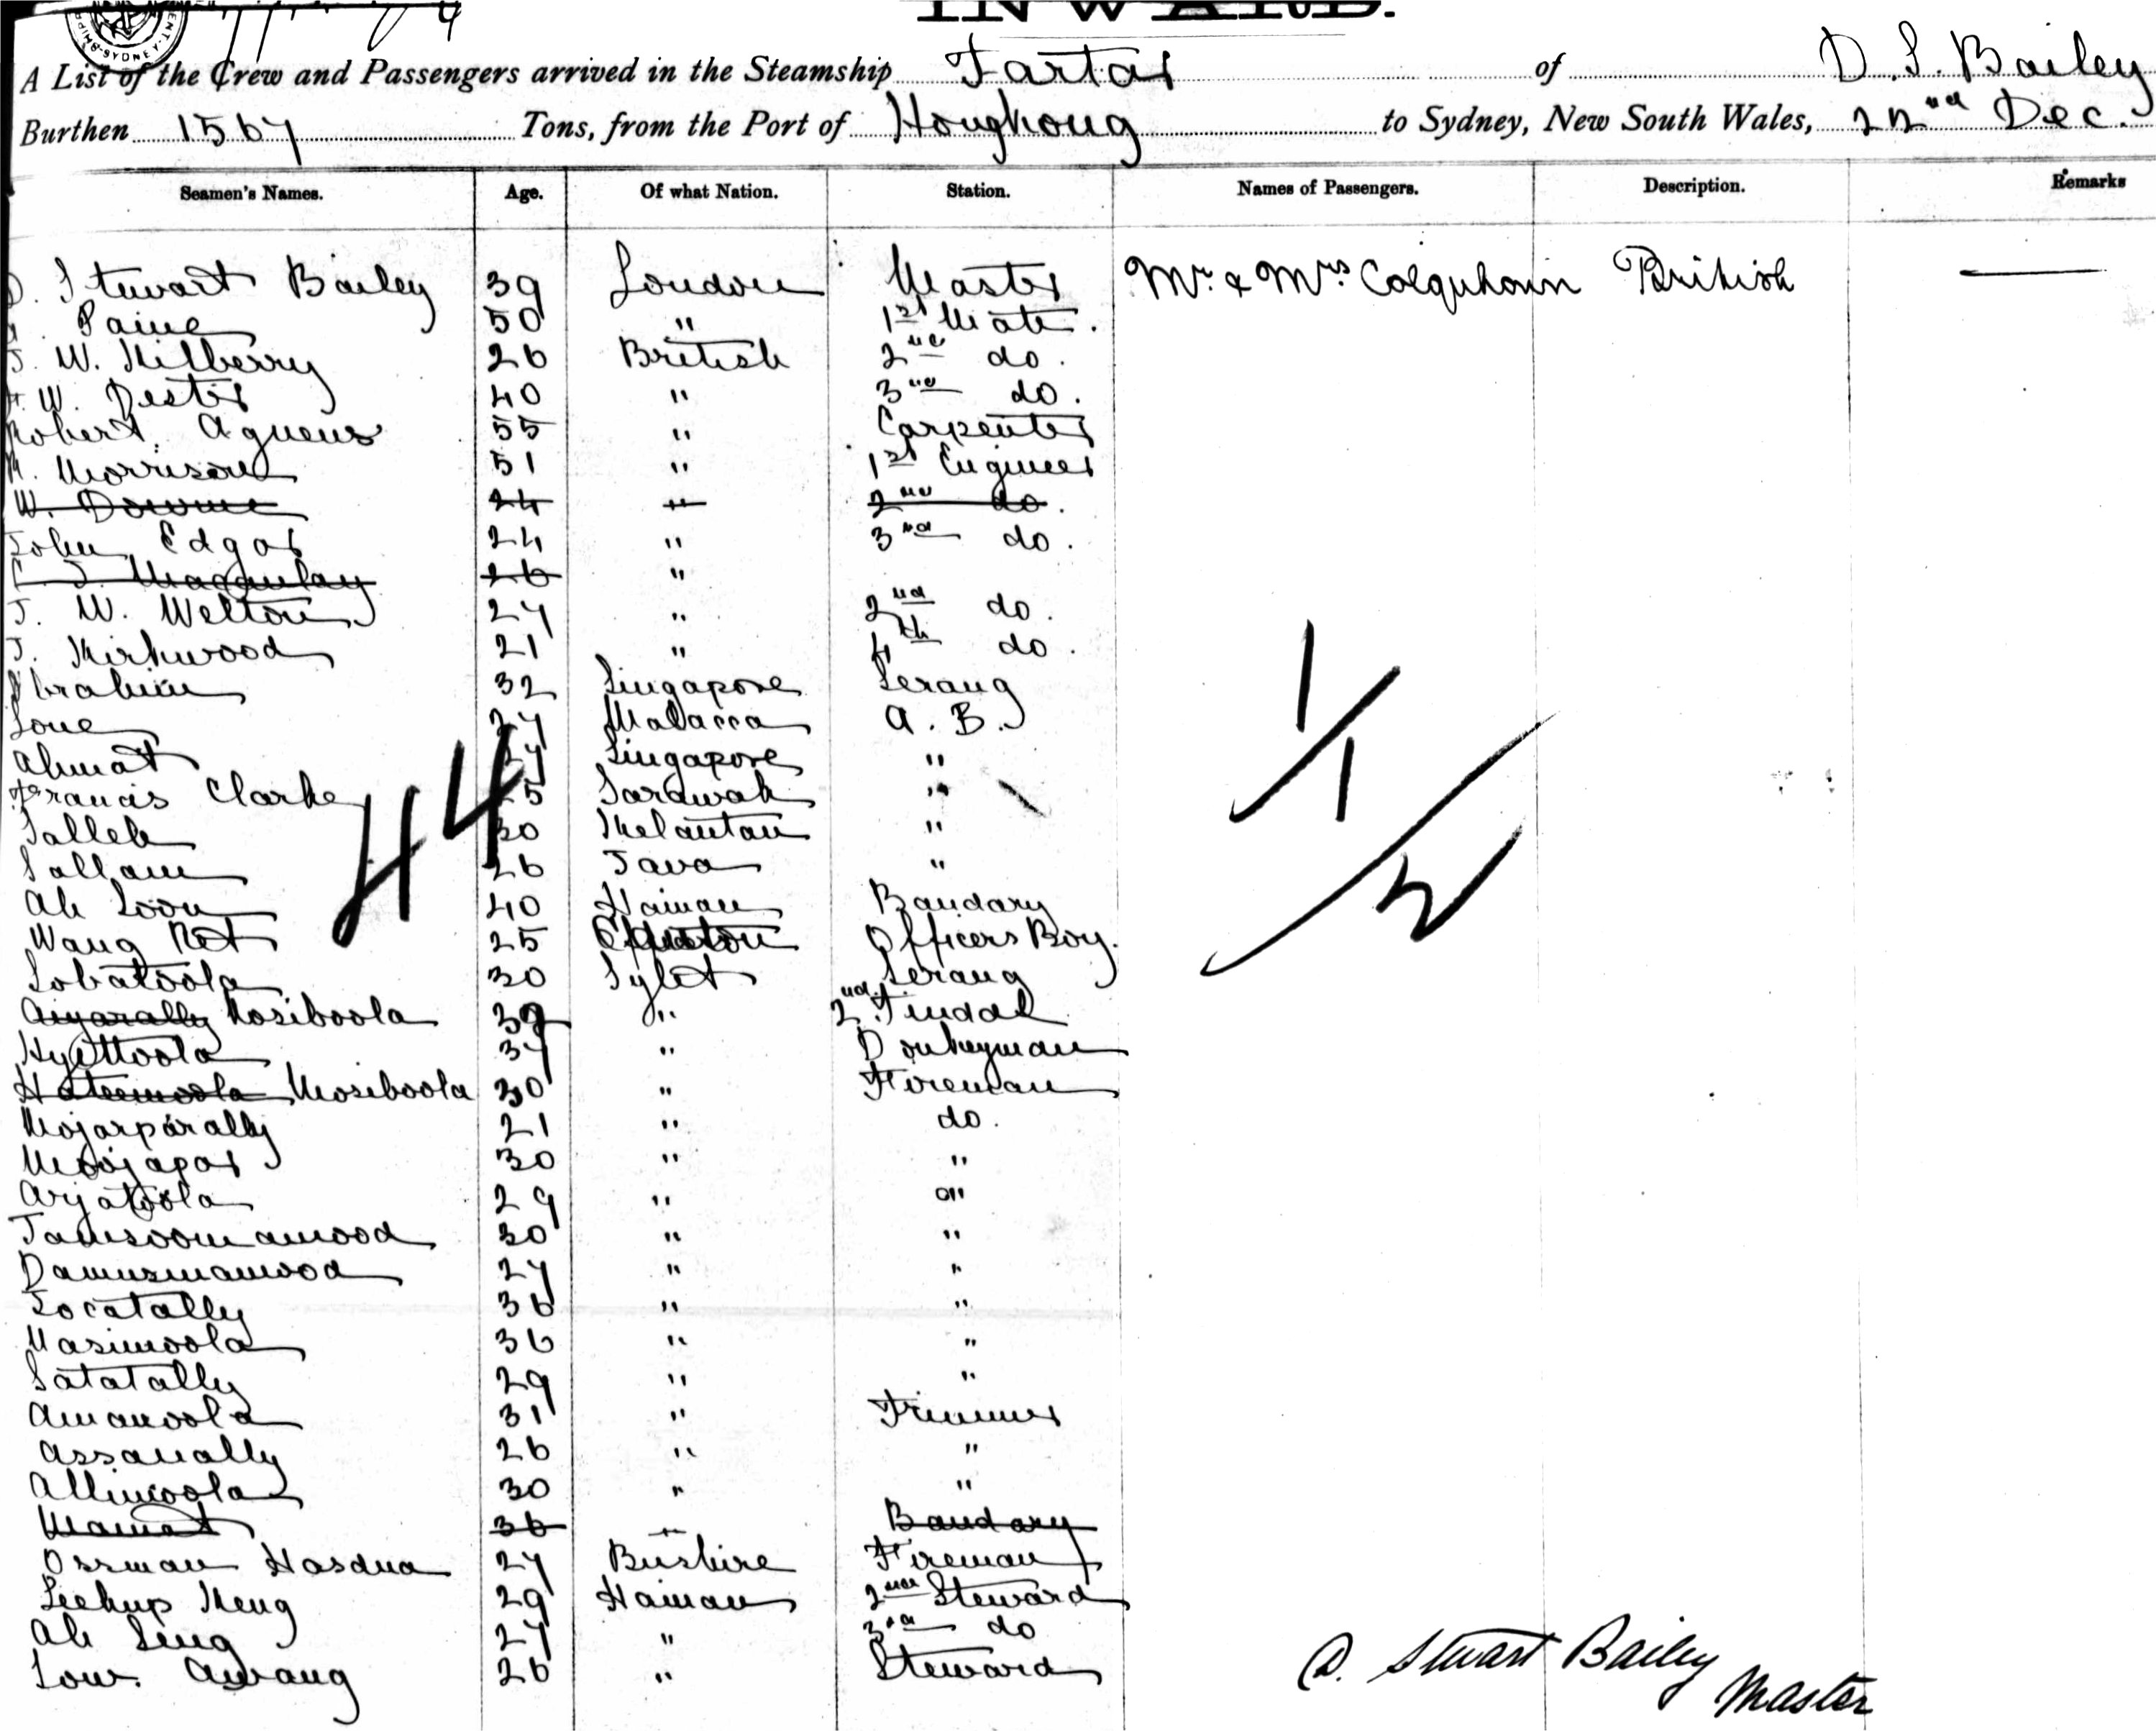 INWARD.
A List of the Crew and Passengers arrived in the Steamship Tartar of D. S. Bailey
Burthen 1567 Tons, from the Port of Hongkong to Sydney, New South Wales, 22nd Dec.
Seamen's Names. Age. Of what Nation. Station. Names of Passengers. Description. Remarks
D. Stewart Bailey 39 London Master Mr. & Mrs. Colquhoun British —
Paine 50 " 1st Mate.
J. W. Kilberry 26 British 2nd do.
W. Dester 40 " 3rd do.
Robert Agnews 55 " Carpenter
Morrison 51 " 1st Engineer
W. Downie 24 " 2nd do.
John Edgar 24 " 3rd do.
Macaulay 26 "
J. W. Welton 27 " 2nd do.
J. Kirkwood 21 " 4th do.
Ibrahim 32 Singapore Serang
27 Malacca A. B.
Ahmat Singapore "
Francis Clarke 25 Sarawak "
Salleh 30 Kelantan "
Sallam 26 Java "
Ah Loon 40 Hainan Bandary
Wang Ket 25 Officers Boy.
Sobatoola 30 Sylet Serang
Nosiboola " 2nd Tindal
Hyettoola 37 " Donkeyman
Hateemoola Mosiboola 30 " Fireman
Mojarparally 21 " do.
Moojapar 30 " "
Arjatoola 29 " "
Tamsoomamood 30 " "
Damusmamood 27 " "
Tocatally 36 " "
Nasimoola 36 " "
Satatally 29 " "
Amanoola 31 " Trimmer
Assanally 26 " "
Allimoola 30 " "
Mamat 36 " Bandary
Ossman Hasdua 27 Bushire Fireman
Leekup Keng 29 Hainan 2nd Steward
Ah Sing 27 " 3rd do
Low Awang 26 " Steward
44
1
1
2
D. Stewart Bailey
Master